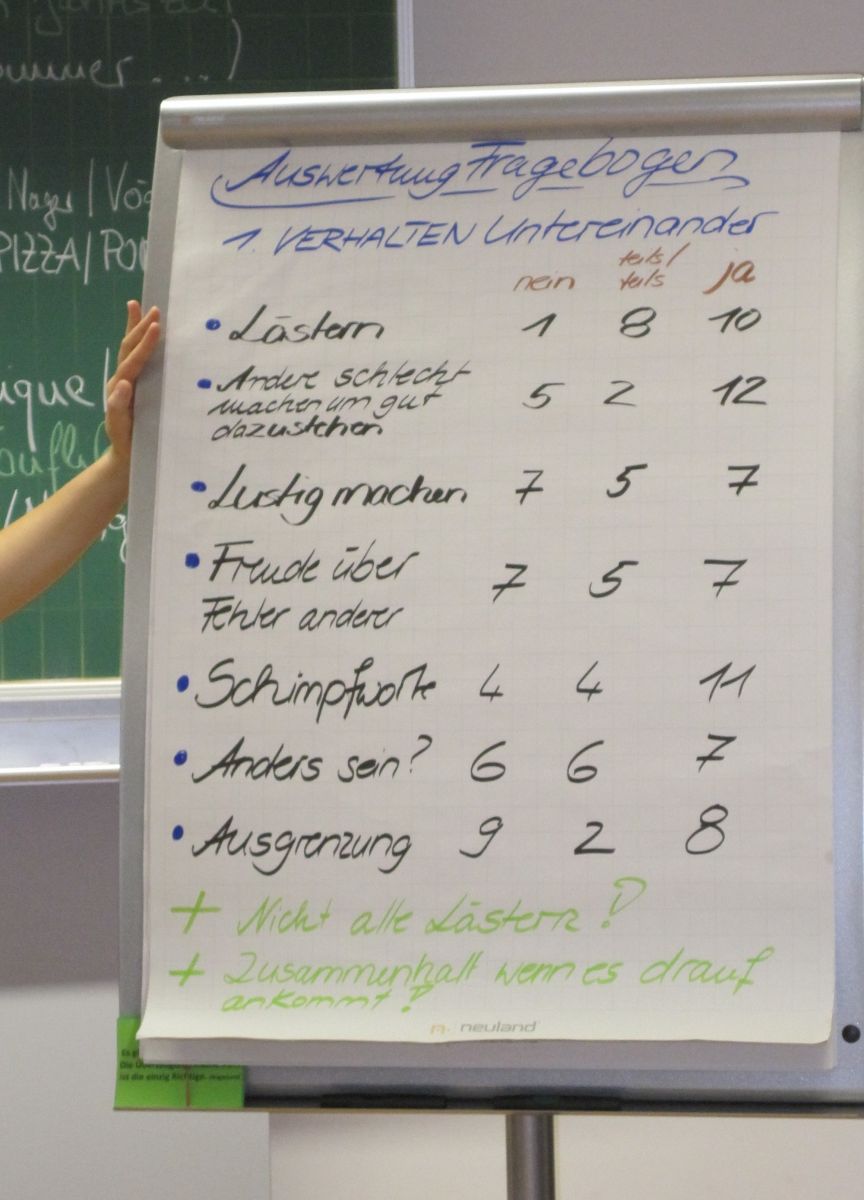 ummer ....)
Nager / Vög
PIZZA / POM
ique /
Auswertung Fragebogen
1. VERHALTEN Untereinander
nein teils/ ja
teils
• Lästern 1 8 10
• Andere schlecht
machen um gut 5 2 12
dazustehen
• Lustig machen 7 5 7
• Freude über
Fehler anderer 7 5 7
• Schimpfworte 4 4 11
• Anders sein? 6 6 7
• Ausgrenzung 9 2 8
+ Nicht alle Lästern!
+ Zusammenhalt wenn es drauf
ankommt!
neuland
ist die einzig Richtige.